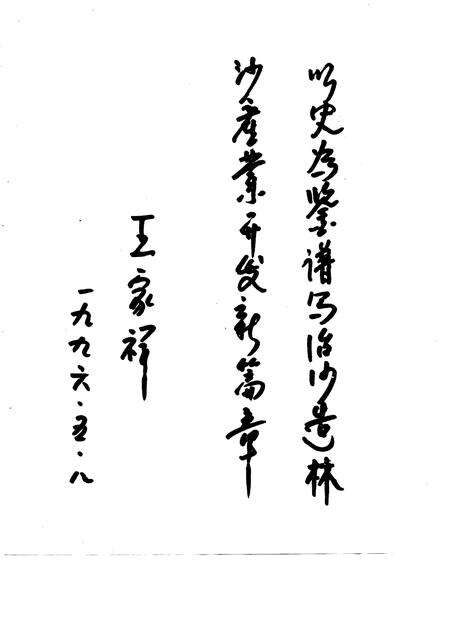 以史为鉴谱写治沙造林
沙産業开发新篇章
王家祥
一九九六·五·八